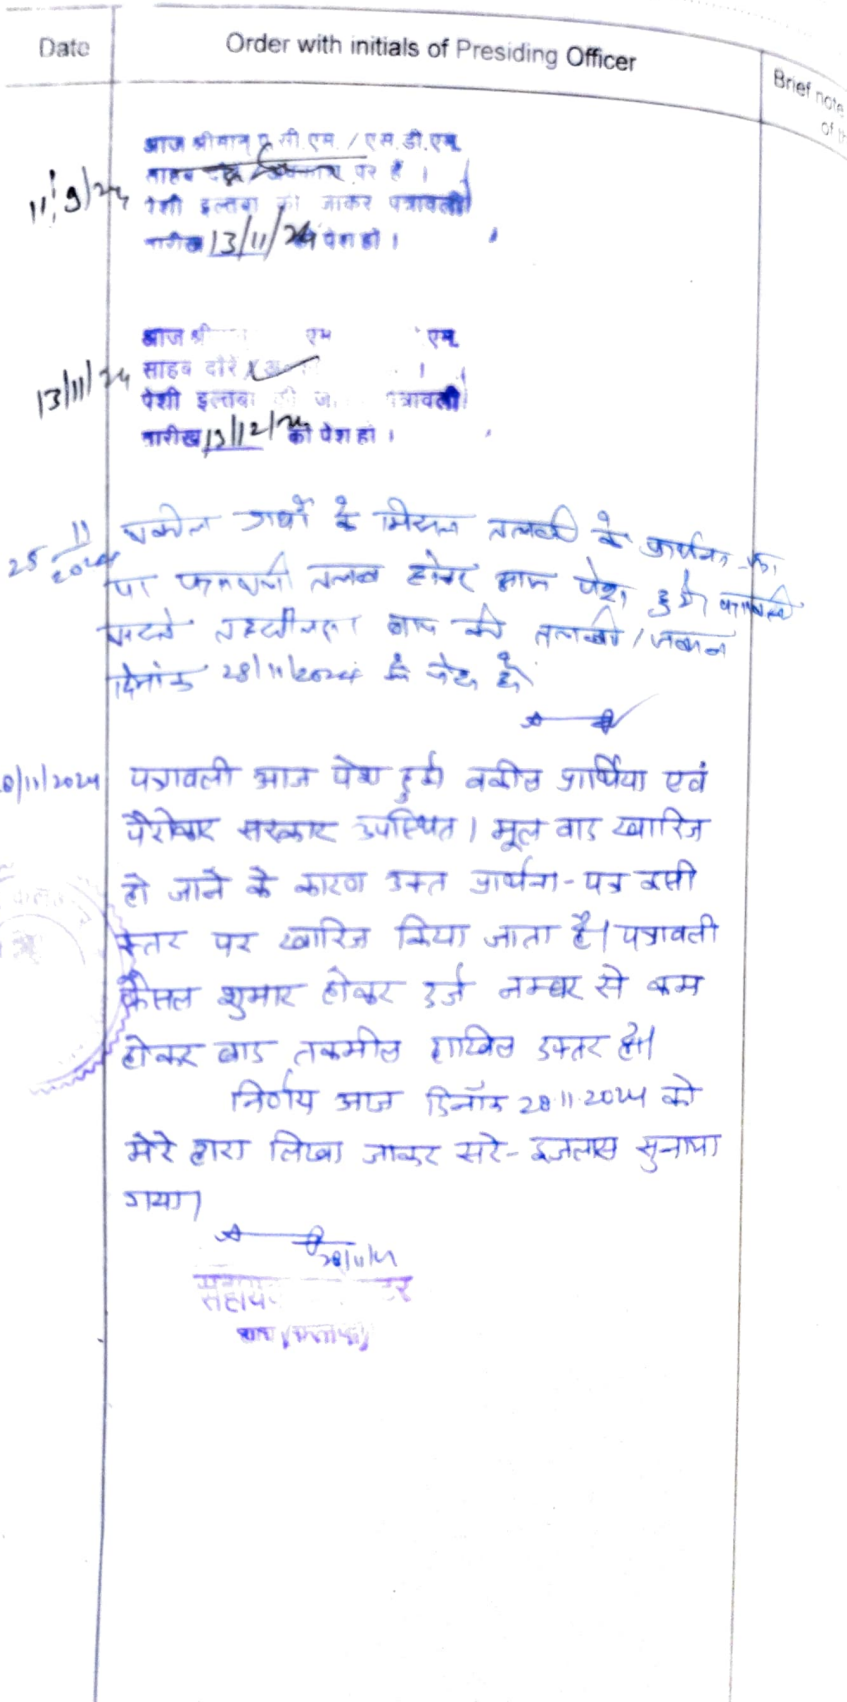 Date
Order with initials of Presiding Officer
Brief note
of th
आज श्रीमान ए.सी.एम. / एस.डी.एम.
साहब पर है ।
11/9/24
पेशी इल्तवा की जाकर पत्रावली
तारीख 13/11/24 को पेश हो ।
आज श्री एम एम.
साहब दौरे
13/11/24
पेशी इल्तबा की जा पत्रावली
तारीख 13/12/24 को पेश हो ।
वकील प्रार्थी के मिसल तलबी के
25 11
2024
पर पत्रावली तलब होकर आज पेश हुई। पत्रावली
वास्ते की तलबी / जवाब
दिनांक 28/11/2024 को पेश हो
8/11/2024 पत्रावली आज पेश हुई। वकील प्रार्थिया एवं
पैरोकार सरकार उपस्थित। मूल वाद खारिज
हो जाने के कारण उक्त प्रार्थना-पत्र इसी
स्तर पर खारिज किया जाता है। पत्रावली
फैसल शुमार होकर दर्ज नम्बर से कम
होकर बाद तकमील दाखिल दफ्तर हो।
निर्णय आज दिनाँक 28.11.2024 को
मेरे द्वारा लिखा जाकर सरे-इजलास सुनाया
गया।
28/11/24
सहायक टर